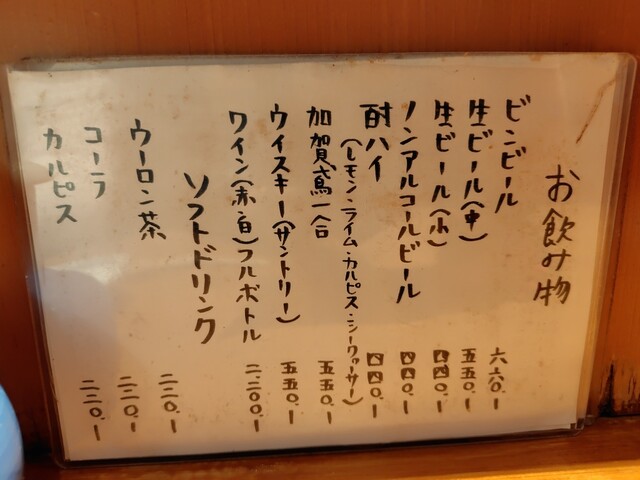 お飲み物
ビンビール 六六〇.ー
生ビール(中) 五五〇.ー
生ビール(小) 四四〇.ー
ノンアルコールビール 四四〇.ー
酎ハイ 四四〇.ー
(レモン・ライム・カルピス・シークヮーサー)
加賀鳶一合 五五〇.ー
ウイスキー(サントリー) 五五〇.ー
ワイン(赤・白)フルボトル 二、二〇〇.ー
ソフトドリンク
ウーロン茶 二二〇.ー
コーラ 二二〇.ー
カルピス 二二〇.ー